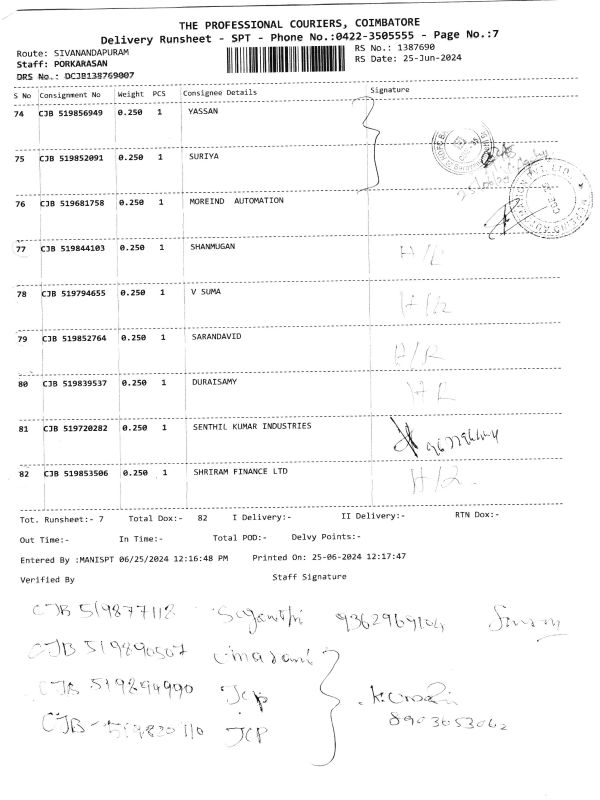 THE PROFESSIONAL COURIERS, COIMBATORE
Delivery Runsheet - SPT - Phone No.:0422-3505555 - Page No.:7
Route: SIVANANDAPURAM RS No.: 1387690
Staff: PORKARASAN RS Date: 25-Jun-2024
DRS No.: DCJB138769007
S No Consignment No Weight PCS Consignee Details Signature
74 CJB 519856949 0.250 1 YASSAN
75 CJB 519852091 0.250 1 SURIYA
76 CJB 519681758 0.250 1 MOREIND AUTOMATION
77 CJB 519844103 0.250 1 SHANMUGAN
78 CJB 519794655 0.250 1 V SUMA
79 CJB 519852764 0.250 1 SARANDAVID H/R
80 CJB 519839537 0.250 1 DURAISAMY
81 CJB 519720282 0.250 1 SENTHIL KUMAR INDUSTRIES
82 CJB 519853506 0.250 1 SHRIRAM FINANCE LTD
Tot. Runsheet:- 7 Total Dox:- 82 I Delivery:- II Delivery:- RTN Dox:-
Out Time:- In Time:- Total POD:- Delvy Points:-
Entered By :MANISPT 06/25/2024 12:16:48 PM Printed On: 25-06-2024 12:17:47
Verified By Staff Signature
CJB 519877118 9362969104
CJB 519890507
CJB 519894990 JCP
CJB - 519820110 JCP 8903653062